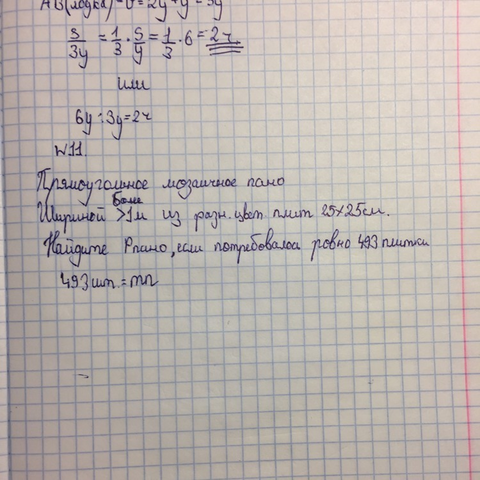 АВ(лодка) - v = 2y + y = 3y
S/3y = 1/3 · S/y = 1/3 · 6 = 2ч.
или
6y : 3y = 2ч
№11.
Прямоугольное мозаичное пано
Шириной более >1м из разн.цвет плит 25×25см.
Найдите Pпано, если потребовалось ровно 493 плитки
493шт. = mn